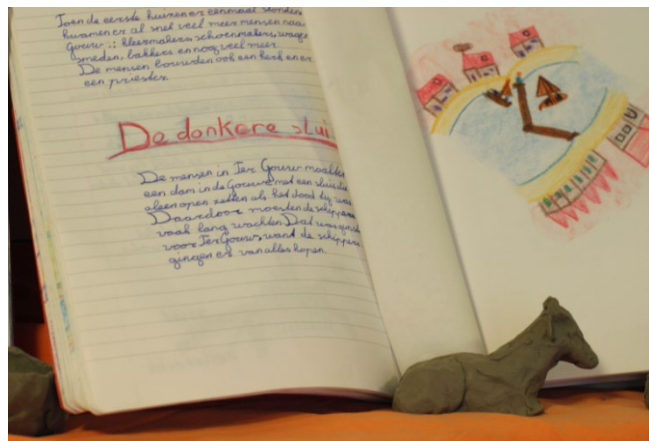 Toen de eerste huizen er eenmaal stonden
kwamen er al snel veel meer mensen naar
Gouw.: kleermakers, schoenmakers, wagen
smeden, bakkers en nog veel meer.
De mensen bouwden ook een kerk en er
een priester.
De donkere slui
De mensen in Ter Gouw maakten
een dam in de Gouwe met een sluis die
alleen open zetten als het dood tij was
Daardoor moesten de schippers
vaak lang wachten. Dat was
voor Ter Gouw, want de schippers
gingen er van alles kopen.